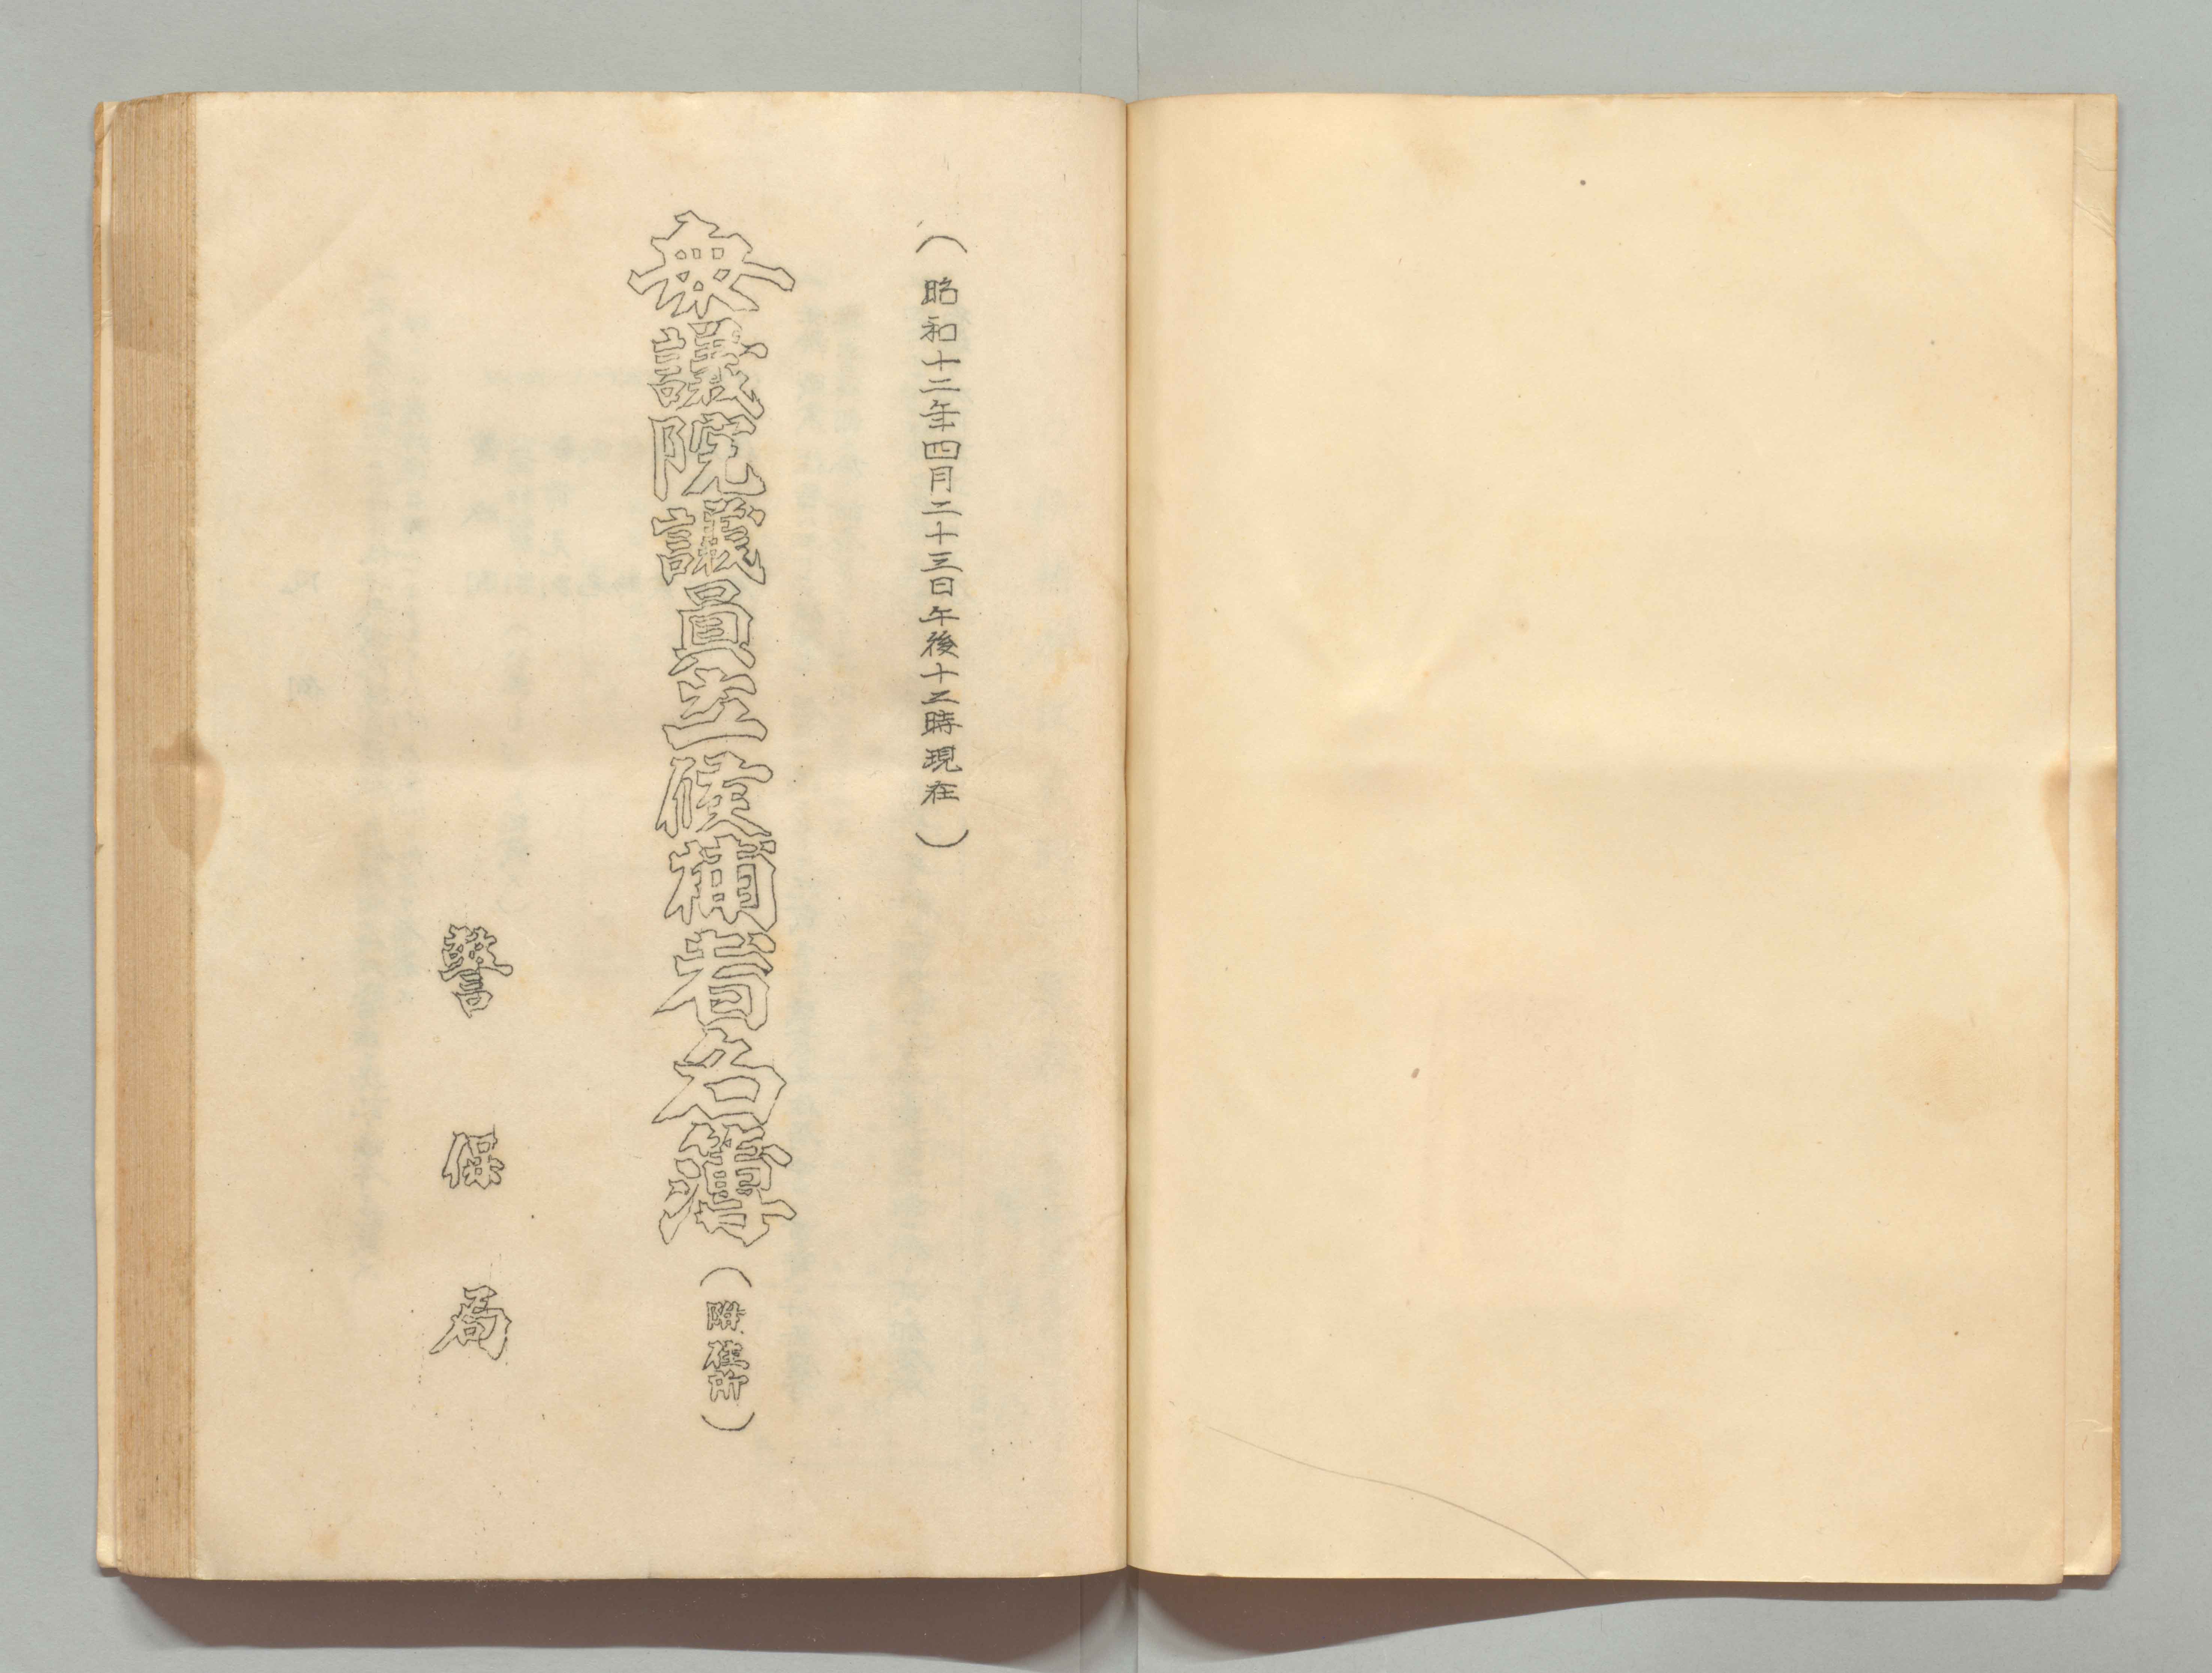 （昭和十二年四月二十三日午後十二時現在）
衆議院議員立候補者名簿（附住所）
警保局